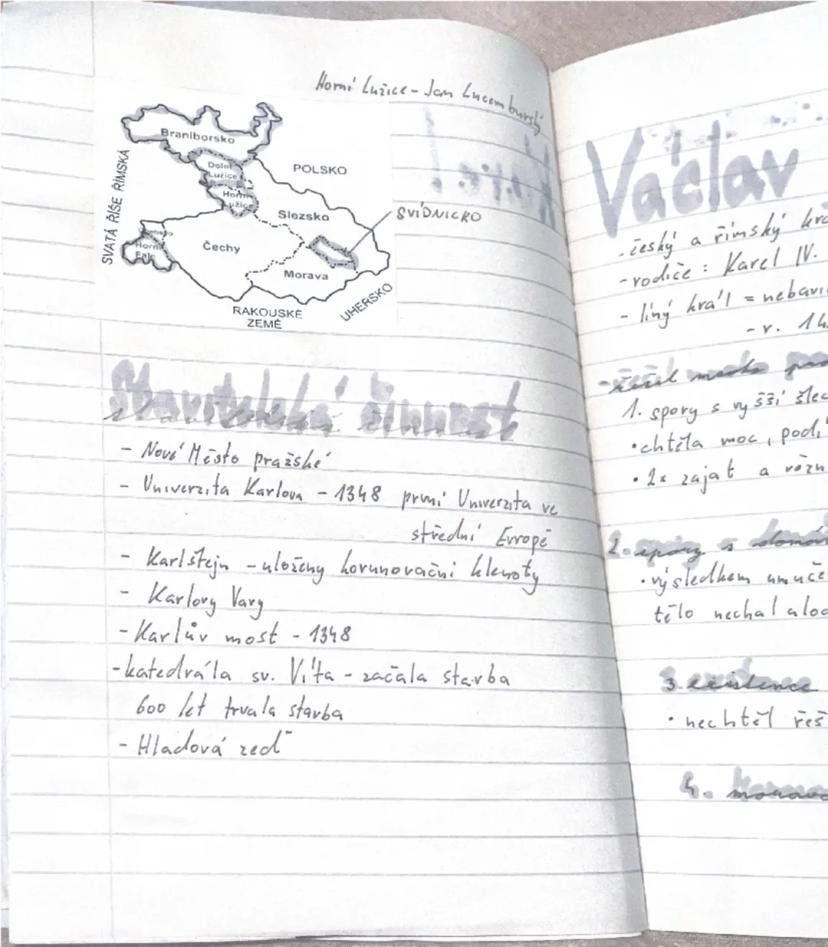 Horní Lužice - Jan Lucemburský
Braniborsko
Dolní
Lužice
Horní
Lužice
POLSKO
SVATÁ ŘÍŠE ŘÍMSKÁ
Slezsko
SVÍDNICKO
Čechy
Horní
Falc
Morava
RAKOUSKÉ
ZEMĚ
UHERSKO
Stavitelská činnost
- Nové Město pražské
- Univerzita Karlova - 1348 první Univerzita ve
střední Evropě
- Karlštejn - uloženy korunovační klenoty
- Karlovy Vary
- Karlův most - 1348
- katedrála sv. Víta - začala stavba
600 let trvala stavba
- Hladová zeď
Václav
- český a římský
- rodiče : Karel IV.
- líný král =
- r.
1. spory s vyšší
• chtěla moc,
• 2x zajat a
2. spory s
• výsledkem
tělo nechal
3.
• nechtěl
4.